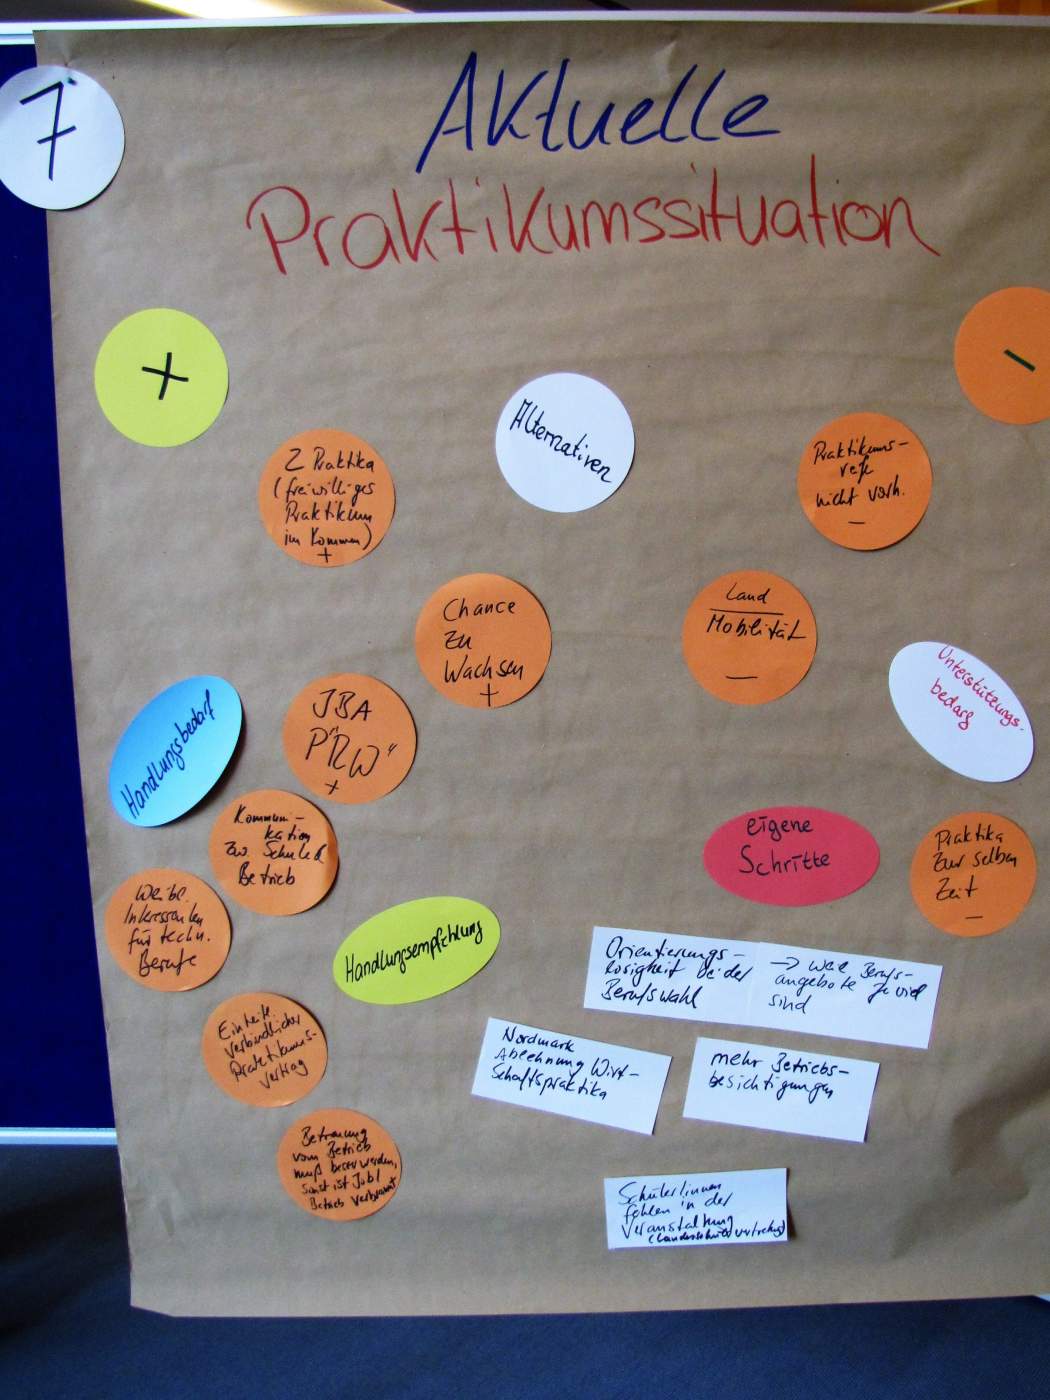 7
Aktuelle
Praktikumssituation
+
−
Alternativen
2 Praktika
(freiwilliges
Praktikum
im Kommen)
+
Praktikums-
reife
nicht vorh.
−
Chance
zu
Wachsen
+
Land
Mobilität
−
Unterstützungs-
bedarf
Handlungsbedarf
JBA
P"RW"
+
Kommuni-
kation
zw. Schule &
Betrieb
eigene
Schritte
Praktika
zur selben
Zeit
−
Weibl.
Interessanten
für techn.
Berufe
Handlungsempfehlung
Orientierungs-
losigkeit bei der
Berufswahl
→ weil Berufs-
angebote zu viel
sind
Einheitl.
verbindlicher
Praktikums-
vertrag
Nordmark
Ablehnung Wirt-
schaftspraktika
mehr Betriebs-
besichtigungen
Betreuung
vom Betrieb
muß besser werden,
sonst ist Job/
Betrieb verbrannt
Schüler/innen
fehlen in der
Veranstaltung
(Landesschülervertretung)